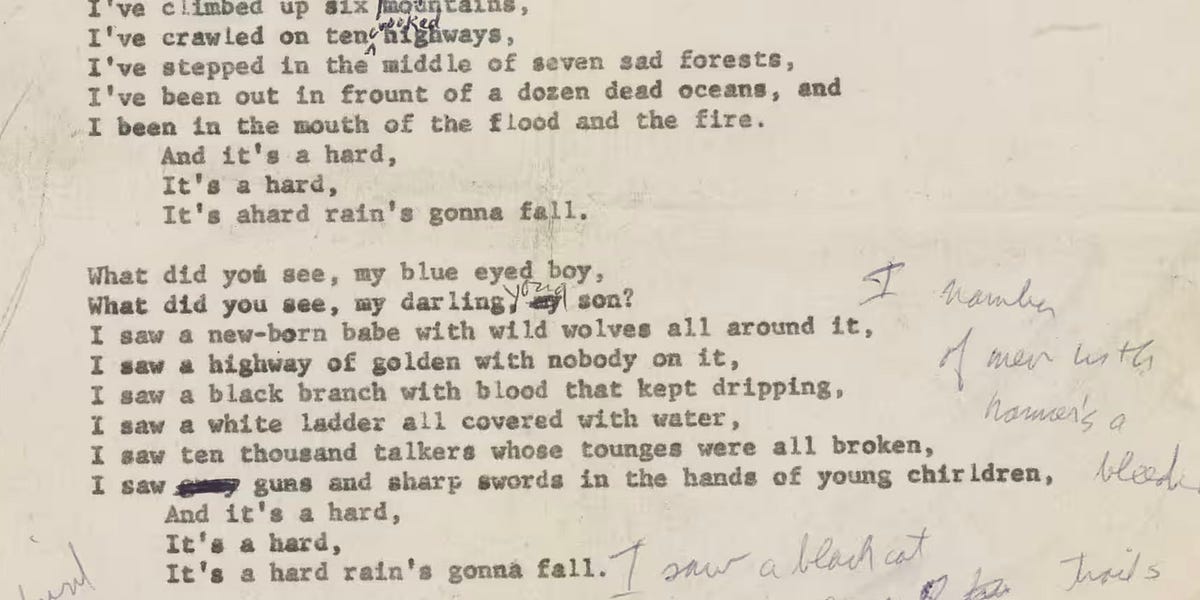 I've climbed up six mountains,
I've crawled on ten crooked highways,
I've stepped in the middle of seven sad forests,
I've been out in frount of a dozen dead oceans, and
I been in the mouth of the flood and the fire.
And it's a hard,
It's a hard,
It's ahard rain's gonna fall.
What did you see, my blue eyed boy,
What did you see, my darling, young son?
I saw a new-born babe with wild wolves all around it,
I saw a highway of golden with nobody on it,
I saw a black branch with blood that kept dripping,
I saw a white ladder all covered with water,
I saw ten thousand talkers whose tounges were all broken,
I saw guns and sharp swords in the hands of young chirldren,
And it's a hard,
It's a hard,
It's a hard rain's gonna fall.
I
of men with
a
I saw a black cat